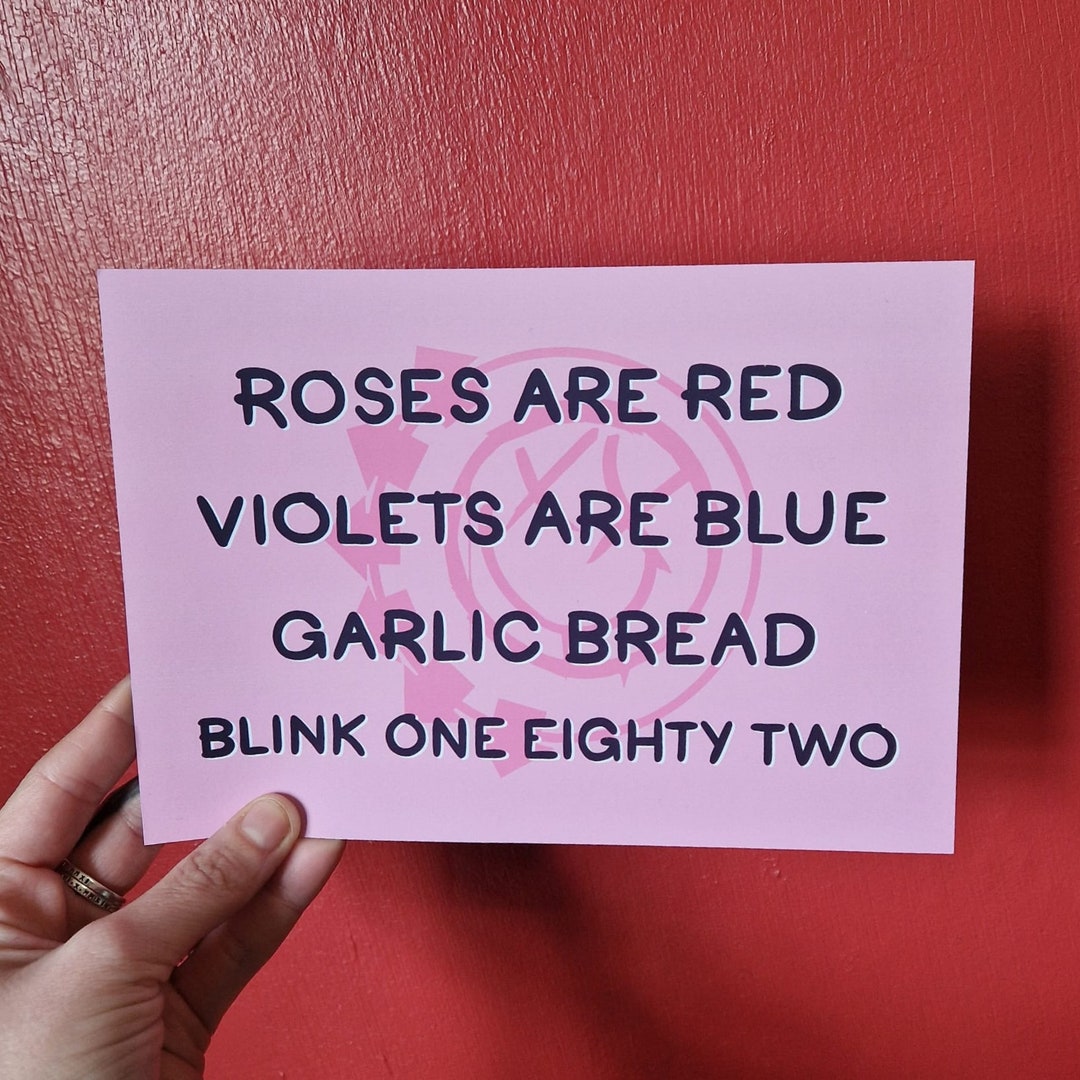 ROSES ARE RED
VIOLETS ARE BLUE
GARLIC BREAD
BLINK ONE EIGHTY TWO